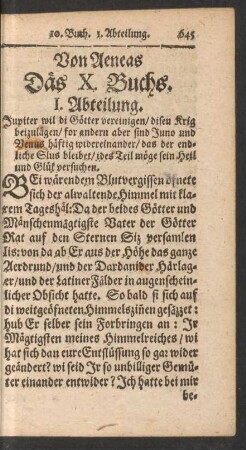 10. Buch. 1. Abteilung. 645
Von Aeneas
Däs X. Buchs.
I. Abteilung.
Jupiter wil di Götter vereinigen/ disen Krig
beizulägen/ for andern aber sind Juno und
Venus häftig widereinander/ das der end-
liche Slus bleibet/ ides Teil möge sein Heil
und Glük versuchen.
BEi wärendem Blutvergissen öfnete
sich der alwaltende Himmel mit kla-
rem Tageshäl: Da der beides Götter und
Mänschenmägtigste Vater der Götter
Rat auf den Sternen Siz versamlen
lis: von da ab Er aus der Höhe das ganze
Aerdrund/ und der Dardanider Härlag-
er/ und der Latiner Fälder in augenschein-
licher Obsicht hatte. So bald si sich auf
di weitgeöfneten Himmelszinen gesäzzet:
hub Er selber sein Forbringen an: Ir
Mägtigsten meines Himmelreiches/ wi
hat sich dan eure Entslüssung so gar wider
geändert? wi seid Ir so unbilliger Gemü-
ter einander entwider? Ich hatte bei mir
be-